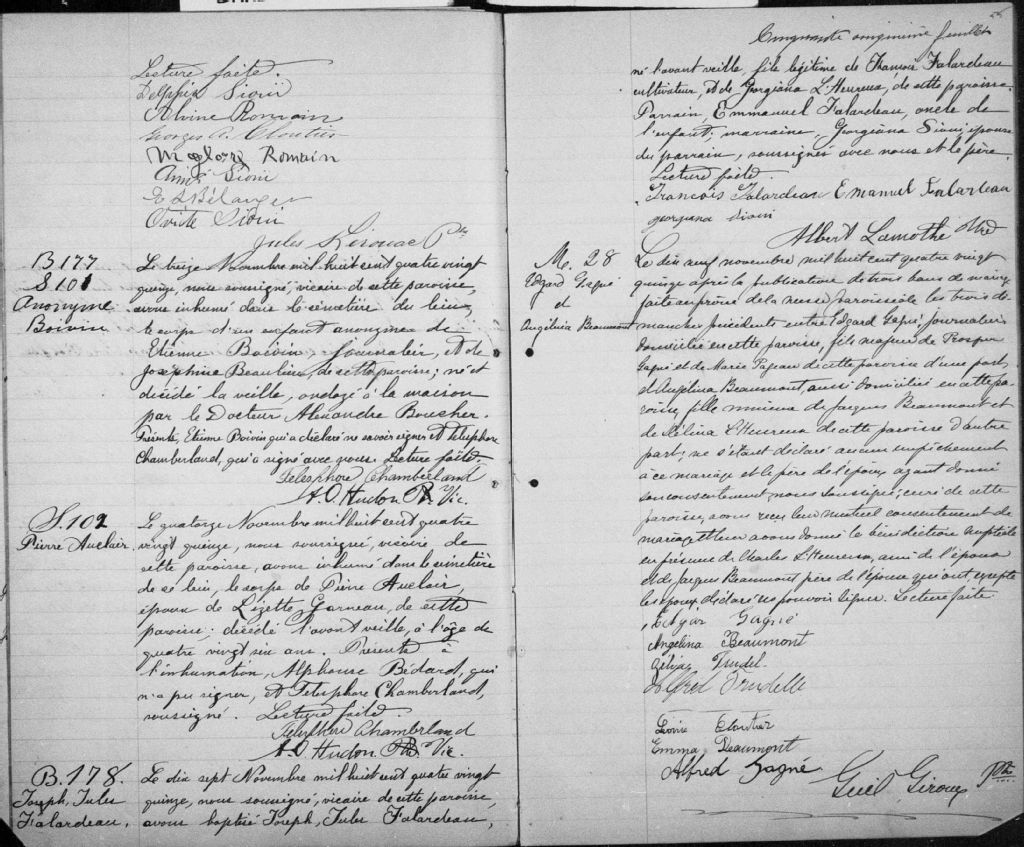 Lecture faite.
Delphis Sioui
Alvine Romain
Georges A. Cloutier
Magloire Romain
Aimé Sioui
E S Bélanger
Ovide Sioui
Jules Kirouac Ptr
B 177
S 101
Anonyme
Boivin
Le treize Novembre mil huit cent quatre vingt
quinze, nous soussigné, vicaire de cette paroisse,
avons inhumé dans le cimétière du lieu,
le corps d'un enfant anonyme de
Etienne Boivin, journalier, et de
Joséphine Beaulieu, de cette paroisse; né et
décédé la veille, ondoyé à la maison
par le Docteur Alexandre Boucher.
Présents, Etienne Boivin qui a déclaré ne savoir signer et Telesphore
Chamberland, qui a signé avec nous. Lecture faite.
Telesphore Chamberland
A. O Hudon Ptr Vic.
S. 102
Pierre Auclair
Le quatorze Novembre mil huit cent quatre
vingt quinze, nous soussigné, vicaire de
cette paroisse, avons inhumé dans le cimétière
de ce lieu, le corps de Pierre Auclair,
époux de Lizette Garneau, de cette
paroisse; décédé l'avant veille, à l'âge de
quatre vingt six ans. Présents à
l'inhumation, Alphonse Bédard, qui
n'a pu signer, et Telesphore Chamberland,
soussigné. Lecture faite.
Telesphore Chamberland
A. O Hudon Ptr Vic.
B. 178.
Joseph, Jules
Falardeau.
Le dix sept Novembre mil huit cent quatre vingt
quinze, nous soussigné, vicaire de cette paroisse,
avons baptisé Joseph, Jules Falardeau,
Cinquante cinquième feuillet
né l'avant veille, fils légitime de François Falardeau
cultivateur, et de Georgiana L'Heureux, de cette paroisse.
Parrain, Emmanuel Falardeau, oncle de
l'enfant; marraine, Georgiana Sioui, épouse
du parrain, soussignés avec nous et le père.
Lecture faite.
François Falardeau Emanuel Falardeau
georgiana sioui
Albert Lamothe Ptre
M. 28
Edgard Gagné
et
Angélina Beaumont
Le dix neuf novembre mil huit cent quatre vingt
quinze après la publication de trois bans de mariage
faite au prône de la messe paroissiale les trois di-
manches précédents entre Edgard Gagné, journalier
domicilié en cette paroisse, fils majeur de Prosper
Gagné et de Marie Pageau de cette paroisse d'une part,
et Angélina Beaumont, aussi domiciliée en cette pa-
roisse, fille mineure de Jacques Beaumont et
de Célina L'Heureux de cette paroisse d'autre
part; ne s'étant déclaré aucun empêchement
à ce mariage et le père de l'épouse ayant donné
son consentement nous soussigné, curé de cette
paroisse, avons reçu leur mutuel consentement de
mariage et leur avons donné la bénédiction nuptiale
en présence de Charles L'Heureux, ami de l'époux
et de Jacques Beaumont père de l'épouse qui ont, excepté
les époux, déclaré ne pouvoir signer. Lecture faite
Edgar Gagné
Angelina Beaumont
Trudel
Alfred Trudelle
Cloutier
Emma Beaumont
Alfred Gagné
Guil. Giroux Ptre